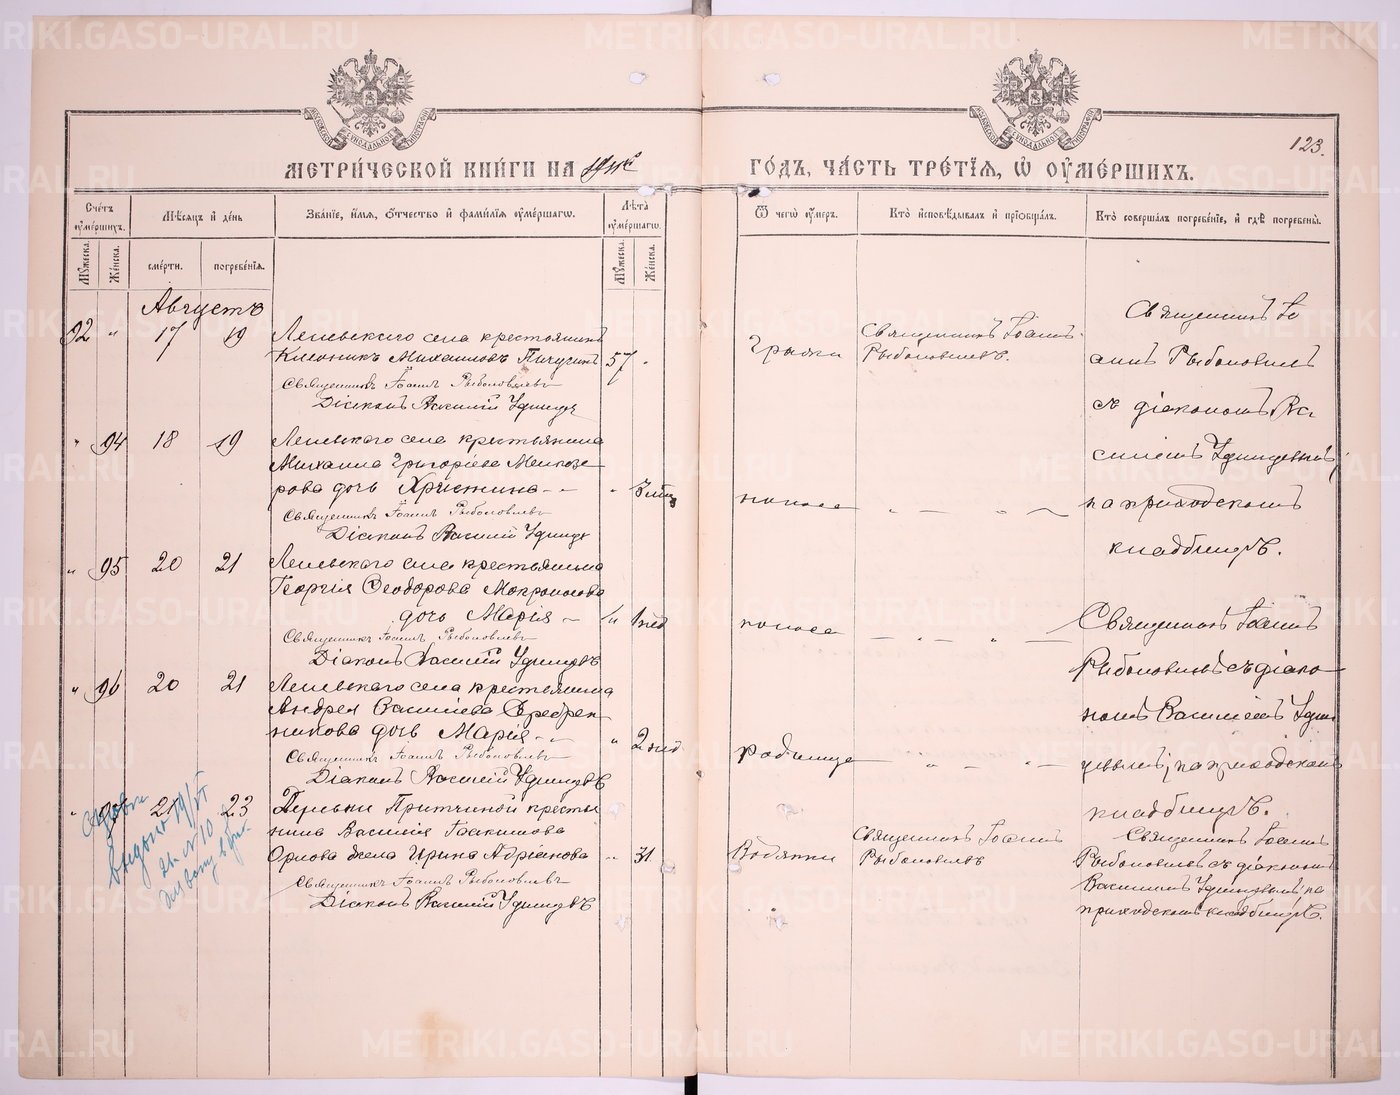 123.
МЕТРИ́ЧЕСКОЙ КНИ́ГИ НА
ГО́ДЪ, ЧА́СТЬ ТРЕ́ТІѦ, Ѡ ОУМЕ́РШИХЪ.
Сче́тъ оуме́ршихъ.
Мꙋ́жеска.
Же́нска.
Мѣ́сѧцъ и҆ де́нь
сме́рти.
погребе́нїѧ.
Зва́нїе, и҆́мѧ, ѻ҆́тчество и҆ фами́лїѧ оуме́ршагѡ.
Лѣ́та оуме́ршагѡ.
Мꙋ́жеска.
Же́нска.
Ѿ чегѡ̀ оу́меръ.
Кто̀ и҆сповѣ́дывалъ и҆ прїѡбща́лъ.
Кто̀ соверша́лъ погребе́нїе, и҆ гдѣ̀ погребены̀.
Августъ
92 " 17 19 села крестьянинъ
Михаиловъ Пичугинъ 57 "
Священникъ Іоаннъ Рыболовлевъ
Діаконъ Василій Удинцевъ
грыжи
Священникъ Іоаннъ
Рыболовлевъ.
Священникъ Іо
аннъ Рыболовлевъ
съ діакономъ Ва
силіемъ Удинцевымъ,
на приходскомъ
кладбищѣ.
" 94 18 19 села крестьянина
Михаила Григоріева
дочь Христина
Священникъ Іоаннъ Рыболовлевъ
Діаконъ Василій Удинцевъ
поноса
" 95 20 21 села крестьянина
Георгія Ѳеодорова Мокроносова
дочь Марія " 1 нед
Священникъ Іоаннъ Рыболовлевъ
Діаконъ Василій Удинцевъ
поноса
Священникъ Іоаннъ
Рыболовлевъ съ діако
номъ Василіемъ Удин
цевымъ, на приходскомъ
кладбищѣ.
" 96 20 21 села крестьянина
Андрея Василіева Серебрен
никова дочь Марія " 2 нед
Священникъ Іоаннъ Рыболовлевъ
Діаконъ Василій Удинцевъ
родимца
" 21 23 Деревни Притчиной кресть
нина Василія Іоакимова
Орлова жена Ирина Адріанова " 31
Священникъ Іоаннъ Рыболовлевъ
Діаконъ Василій Удинцевъ
Водянки
Священникъ Іоаннъ
Рыболовлевъ
Священникъ Іоаннъ
Рыболовлевъ съ діакономъ
Василіемъ Удинцевымъ, на
приходскомъ кладбищѣ.
METRIKI.GASO-URAL.RU